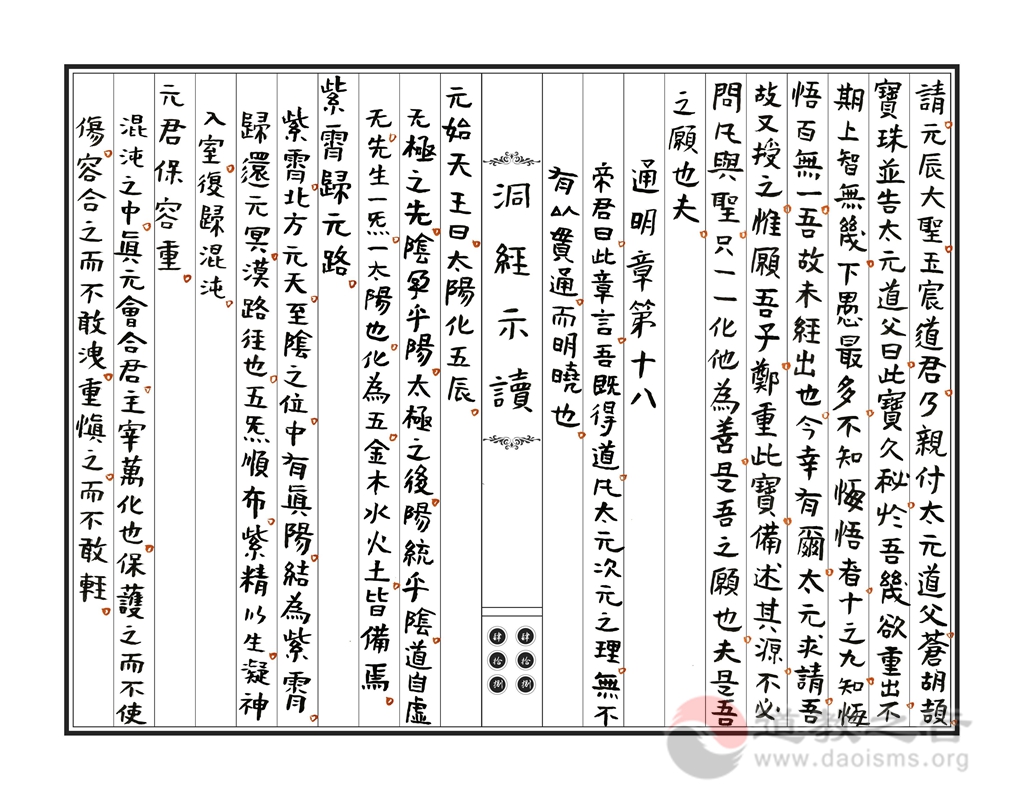 請元辰大聖玉宸道君乃親付太元道父蒼胡頡
寶珠並告太元道父曰此寶久秘於吾幾欲重出不
期上智無幾下愚最多不知悔悟者十之九知悔
悟百無一吾故未經出也今幸有爾太元求請吾
故又授之惟願吾子鄭重此寶備述其源不必
問凡與聖只一一化他為善是吾之願也夫是吾
之願也夫
通明章第十八
帝君曰此章言吾既得道凡太元次元之理無不
有以貫通而明曉也
洞經示讀
肆拾捌
肆拾捌
元始天王曰太陽化五辰
无極之先陰孕乎陽太極之後陽統乎陰道自虛
无先生一炁一太陽也化為五金木水火土皆備焉
紫霄歸元路
紫霄北方元天至陰之位中有眞陽結為紫霄
歸還元冥漠路徃也五炁順布紫精以生凝神
入室復歸混沌
元君保容重
混沌之中眞元會合君主宰萬化也保護之而不使
傷容合之而不敢洩重愼之而不敢輕
道教之音
www.daoisms.org